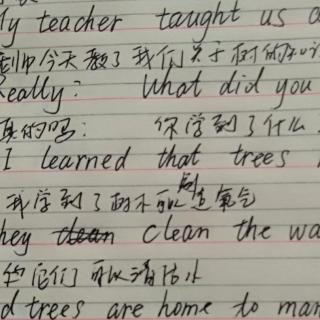 My teacher taught us a
老师今天教了我们关于树的知识
Really? What did you
真的吗? 你学到了什么?
I learned that trees
我学到了树木可以制造氧气
They clean the wa
它们可以清洁水
d trees are home to man